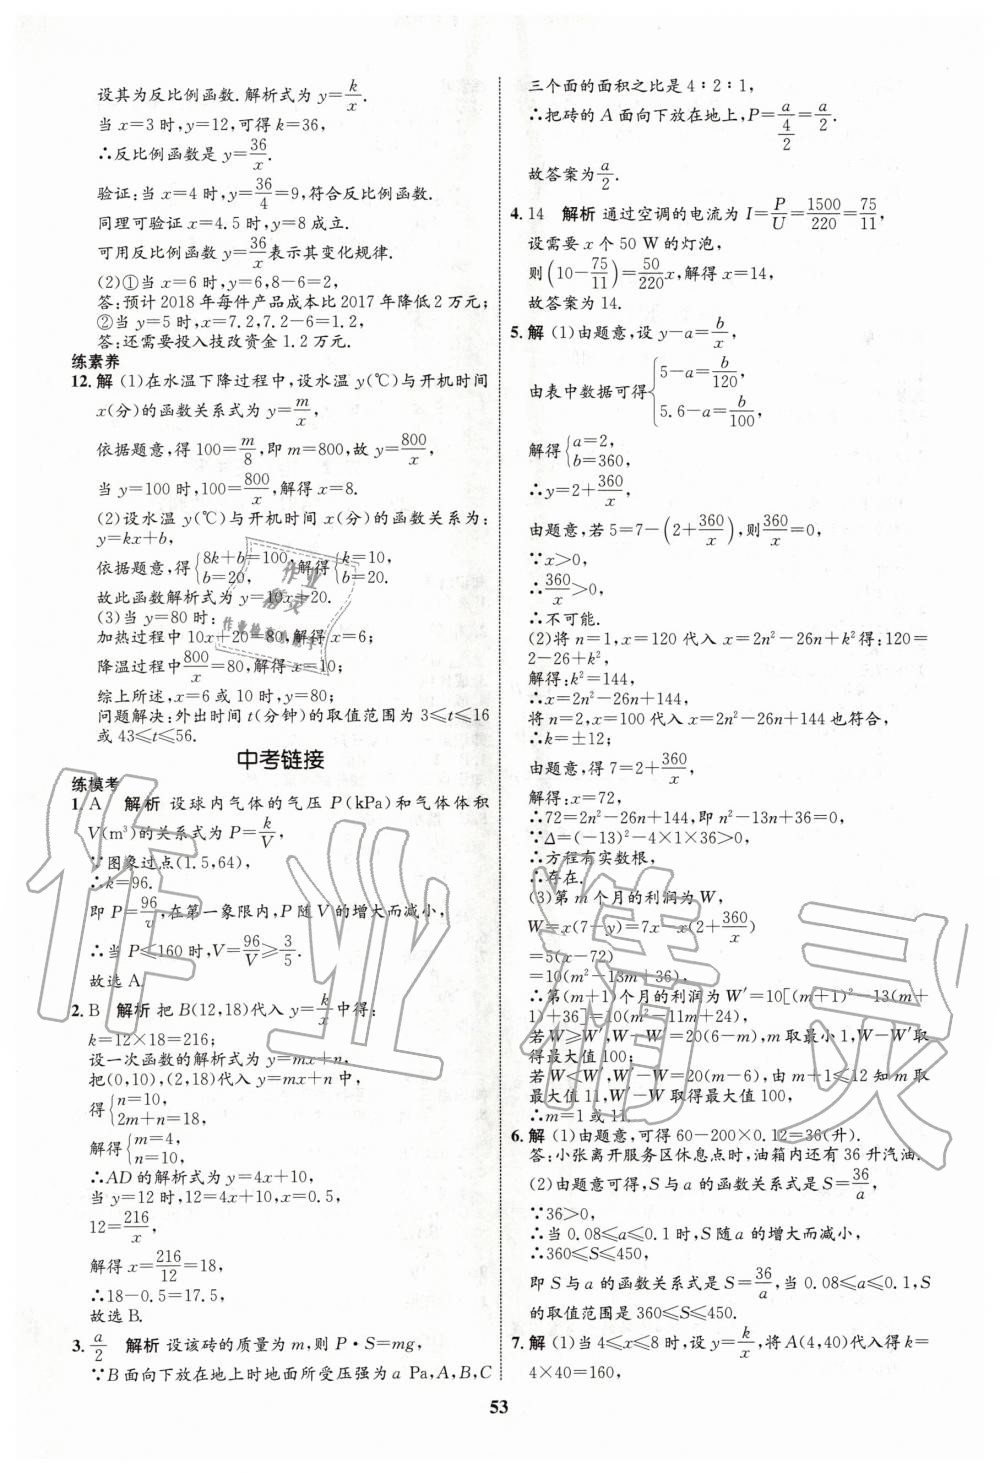 设其为反比例函数.解析式为 y=k/x.
当 x=3 时,y=12,可得 k=36,
∴反比例函数是 y=36/x.
验证:当 x=4 时,y=36/4=9,符合反比例函数.
同理可验证 x=4.5 时,y=8 成立.
可用反比例函数 y=36/x 表示其变化规律.
(2)①当 x=6 时,y=6,8-6=2,
答:预计 2018 年每件产品成本比 2017 年降低 2 万元;
②当 y=5 时,x=7.2,7.2-6=1.2,
答:还需要投入技改资金 1.2 万元.
练素养
12.解 (1)在水温下降过程中,设水温 y(℃)与开机时间
x(分)的函数关系式为 y=m/x,
依据题意,得 100=m/8,即 m=800,故 y=800/x,
当 y=100 时,100=800/x,解得 x=8.
(2)设水温 y(℃)与开机时间 x(分)的函数关系为:
y=kx+b,
依据题意,得{8k+b=100,b=20,解得{k=10,b=20.
故此函数解析式为 y=10x+20.
(3)当 y=80 时:
加热过程中 10x+20=80,解得 x=6;
降温过程中 800/x=80,解得 x=10;
综上所述,x=6 或 10 时,y=80;
问题解决:外出时间 t(分钟)的取值范围为 3≤t≤16
或 43≤t≤56.
中考链接
练模考
1.A 解析 设球内气体的气压 P(kPa)和气体体积
V(m³)的关系式为 P=k/V,
∵图象过点(1.5,64),
∴k=96.
即 P=96/v,在第一象限内,P 随 V 的增大而减小,
∴当 P≤160 时,V=96/V≥3/5.
故选 A.
2.B 解析 把 B(12,18)代入 y=k/x 中得:
k=12×18=216;
设一次函数的解析式为 y=mx+n,
把(0,10),(2,18)代入 y=mx+n 中,
得{n=10,2m+n=18,
解得{m=4,n=10,
∴AD 的解析式为 y=4x+10,
当 y=12 时,12=4x+10,x=0.5,
12=216/x,
解得 x=216/12=18,
∴18-0.5=17.5,
故选 B.
3.a/2 解析 设该砖的质量为 m,则 P·S=mg,
∵B 面向下放在地上时地面所受压强为 a Pa,A,B,C
三个面的面积之比是 4∶2∶1,
∴把砖的 A 面向下放在地上,P=a/(4/2)=a/2.
故答案为 a/2.
4.14 解析 通过空调的电流为 I=P/U=1500/220=75/11,
设需要 x 个 50 W 的灯泡,
则(10-75/11)=50/220x,解得 x=14,
故答案为 14.
5.解 (1)由题意,设 y-a=b/x,
由表中数据可得{5-a=b/120,5.6-a=b/100,
解得{a=2,b=360,
∴y=2+360/x,
由题意,若 5=7-(2+360/x),则360/x=0,
∵x>0,
∴360/x>0,
∴不可能.
(2)将 n=1,x=120 代入 x=2n²-26n+k²得:120=
2-26+k²,
解得:k²=144,
∴x=2n²-26n+144,
将 n=2,x=100 代入 x=2n²-26n+144 也符合,
∴k=±12;
由题意,得 7=2+360/x,
解得:x=72,
∴72=2n²-26n+144,即 n²-13n+36=0,
∵Δ=(-13)²-4×1×36>0,
∴方程有实数根,
∴存在.
(3)第 m 个月的利润为 W,
W=x(7-y)=7x-x(2+360/x)
=5(x-72)
=10(m²-13m+36)
∴第(m+1)个月的利润为 W′=10[(m+1)²-13(m+
1)+36]=10(m²-11m+24),
若 W≥W′,W-W′=20(6-m),m 取最小 1,W-W′取
得最大值 100;
若 W<W′,W′-W=20(m-6),由 m+1≤12 知 m 取
最大值 11,W′-W取得最大值 100,
∴m=1 或 11.
6.解 (1)由题意,可得 60-200×0.12=36(升).
答:小张离开服务区休息点时,油箱内还有 36 升汽油.
(2)由题意可得,S 与 a 的函数关系式是 S=36/a,
∵36>0,
∴当 0.08≤a≤0.1 时,S 随 a 的增大而减小,
∴360≤S≤450,
即 S 与 a 的函数关系式是 S=36/a,当 0.08≤a≤0.1,S
的取值范围是 360≤S≤450.
7.解 (1)当 4≤x≤8 时,设 y=k/x,将 A(4,40)代入得 k=
4×40=160,
53
作业精灵
作业
精灵
作业检查小助手